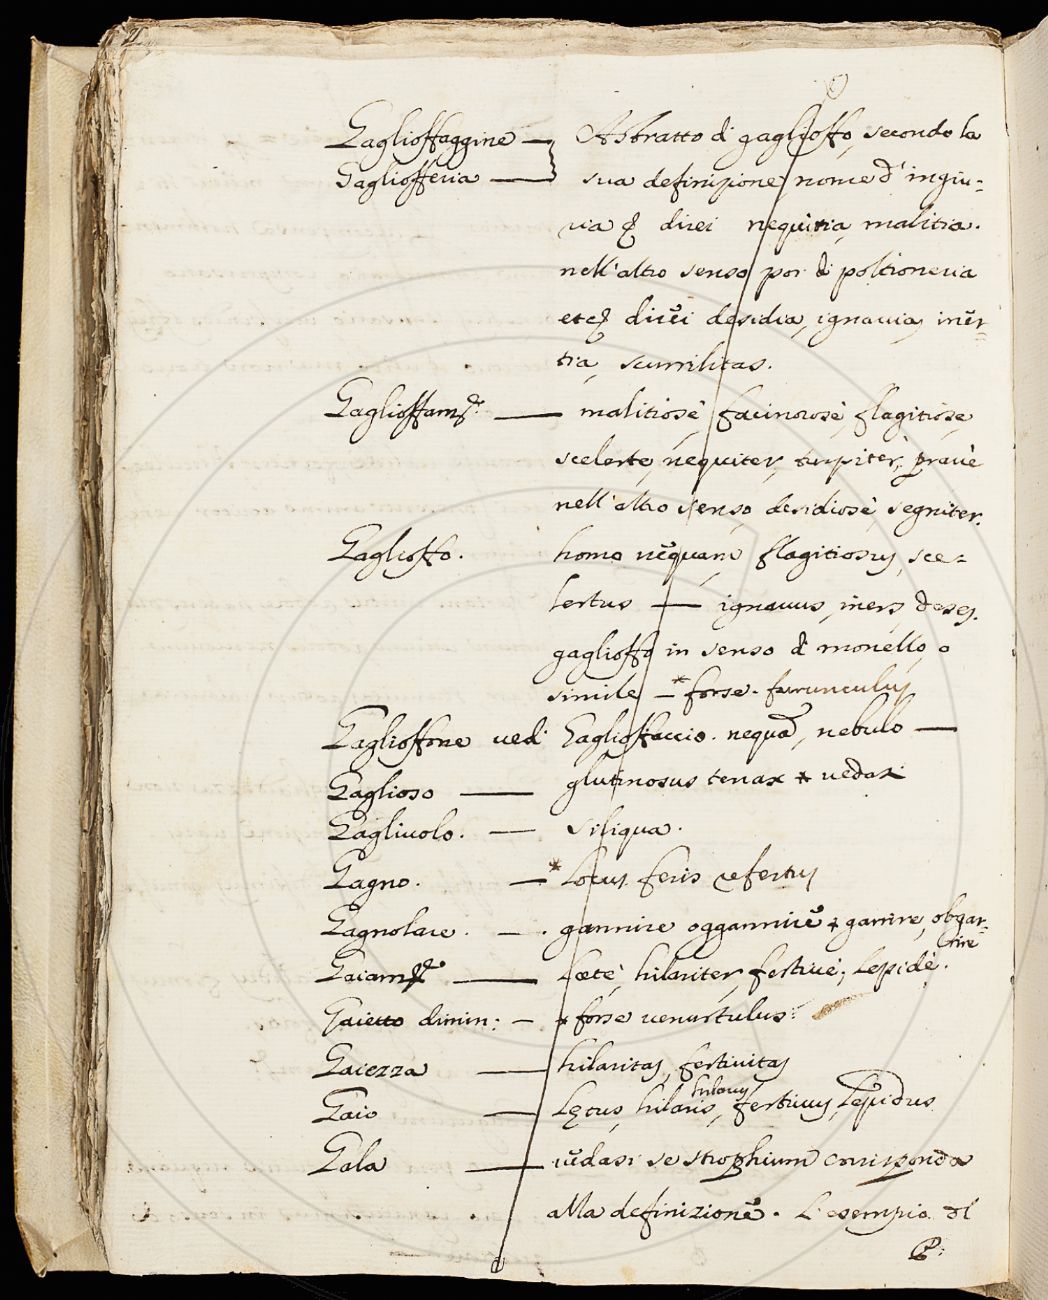 Gaglioffaggine — Astratto di gaglioffo, secondo la
Gagliofferia — sua definizione, nome d'ingiu=
ria direi nequitia, malitia.
nell'altro senso poi di poltroneria
etc direi desidia, ignavia, iner=
tia, scurrilitas.
Gaglioffam.te — malitiosè, facinorosè, flagitiosè,
scelestè, nequiter, turpiter, pravè
nell'altro senso, desidiosè segniter.
Gaglioffo. homo nequam flagitiosus, sce=
lestus — ignavus, iners, deses.
gaglioffo in senso di monello, o
simile — * forse. furunculus
Gaglioffone vedi Gaglioffaccio. nequā, nebulo —
Gaglioso — glutinosus tenax * vedasi
Gagliuolo. — siliqua.
Gagno. — * Locus feris refertus
Gagnolare. — . gannire oggannire * garrire, obgan=
nire
Gaiam.te — Lætè, hilariter, festivè, lepidè.
Gaietto dimin: — * forse venustulus:
Gaiezza — hilaritas, festivitas
hilarus
Gaio — Lętus, hilaris, festivus, lepidus
Gala — vedasi se strophium corrisponda
alla definizione. L'esempio di